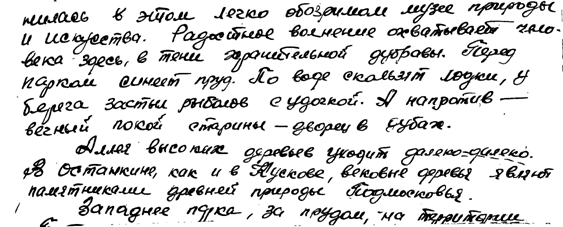 нилась в этом легко обозримом музее природы
и искусства. Радостное волнение охватывает чело-
века здесь, в тени хранительной дубравы. Перед
парком синеет пруд. По воде скользят лодки, у
берега застыл рыболов с удочкой. А напротив —
вечный покой старины — дворец в дубах.
Аллея высоких деревьев уходит далеко-далеко.
В Останкине, как и в Кускове, вековые деревья явля
памятниками древней природы Подмосковья.
Западнее парка, за прудом, на территории